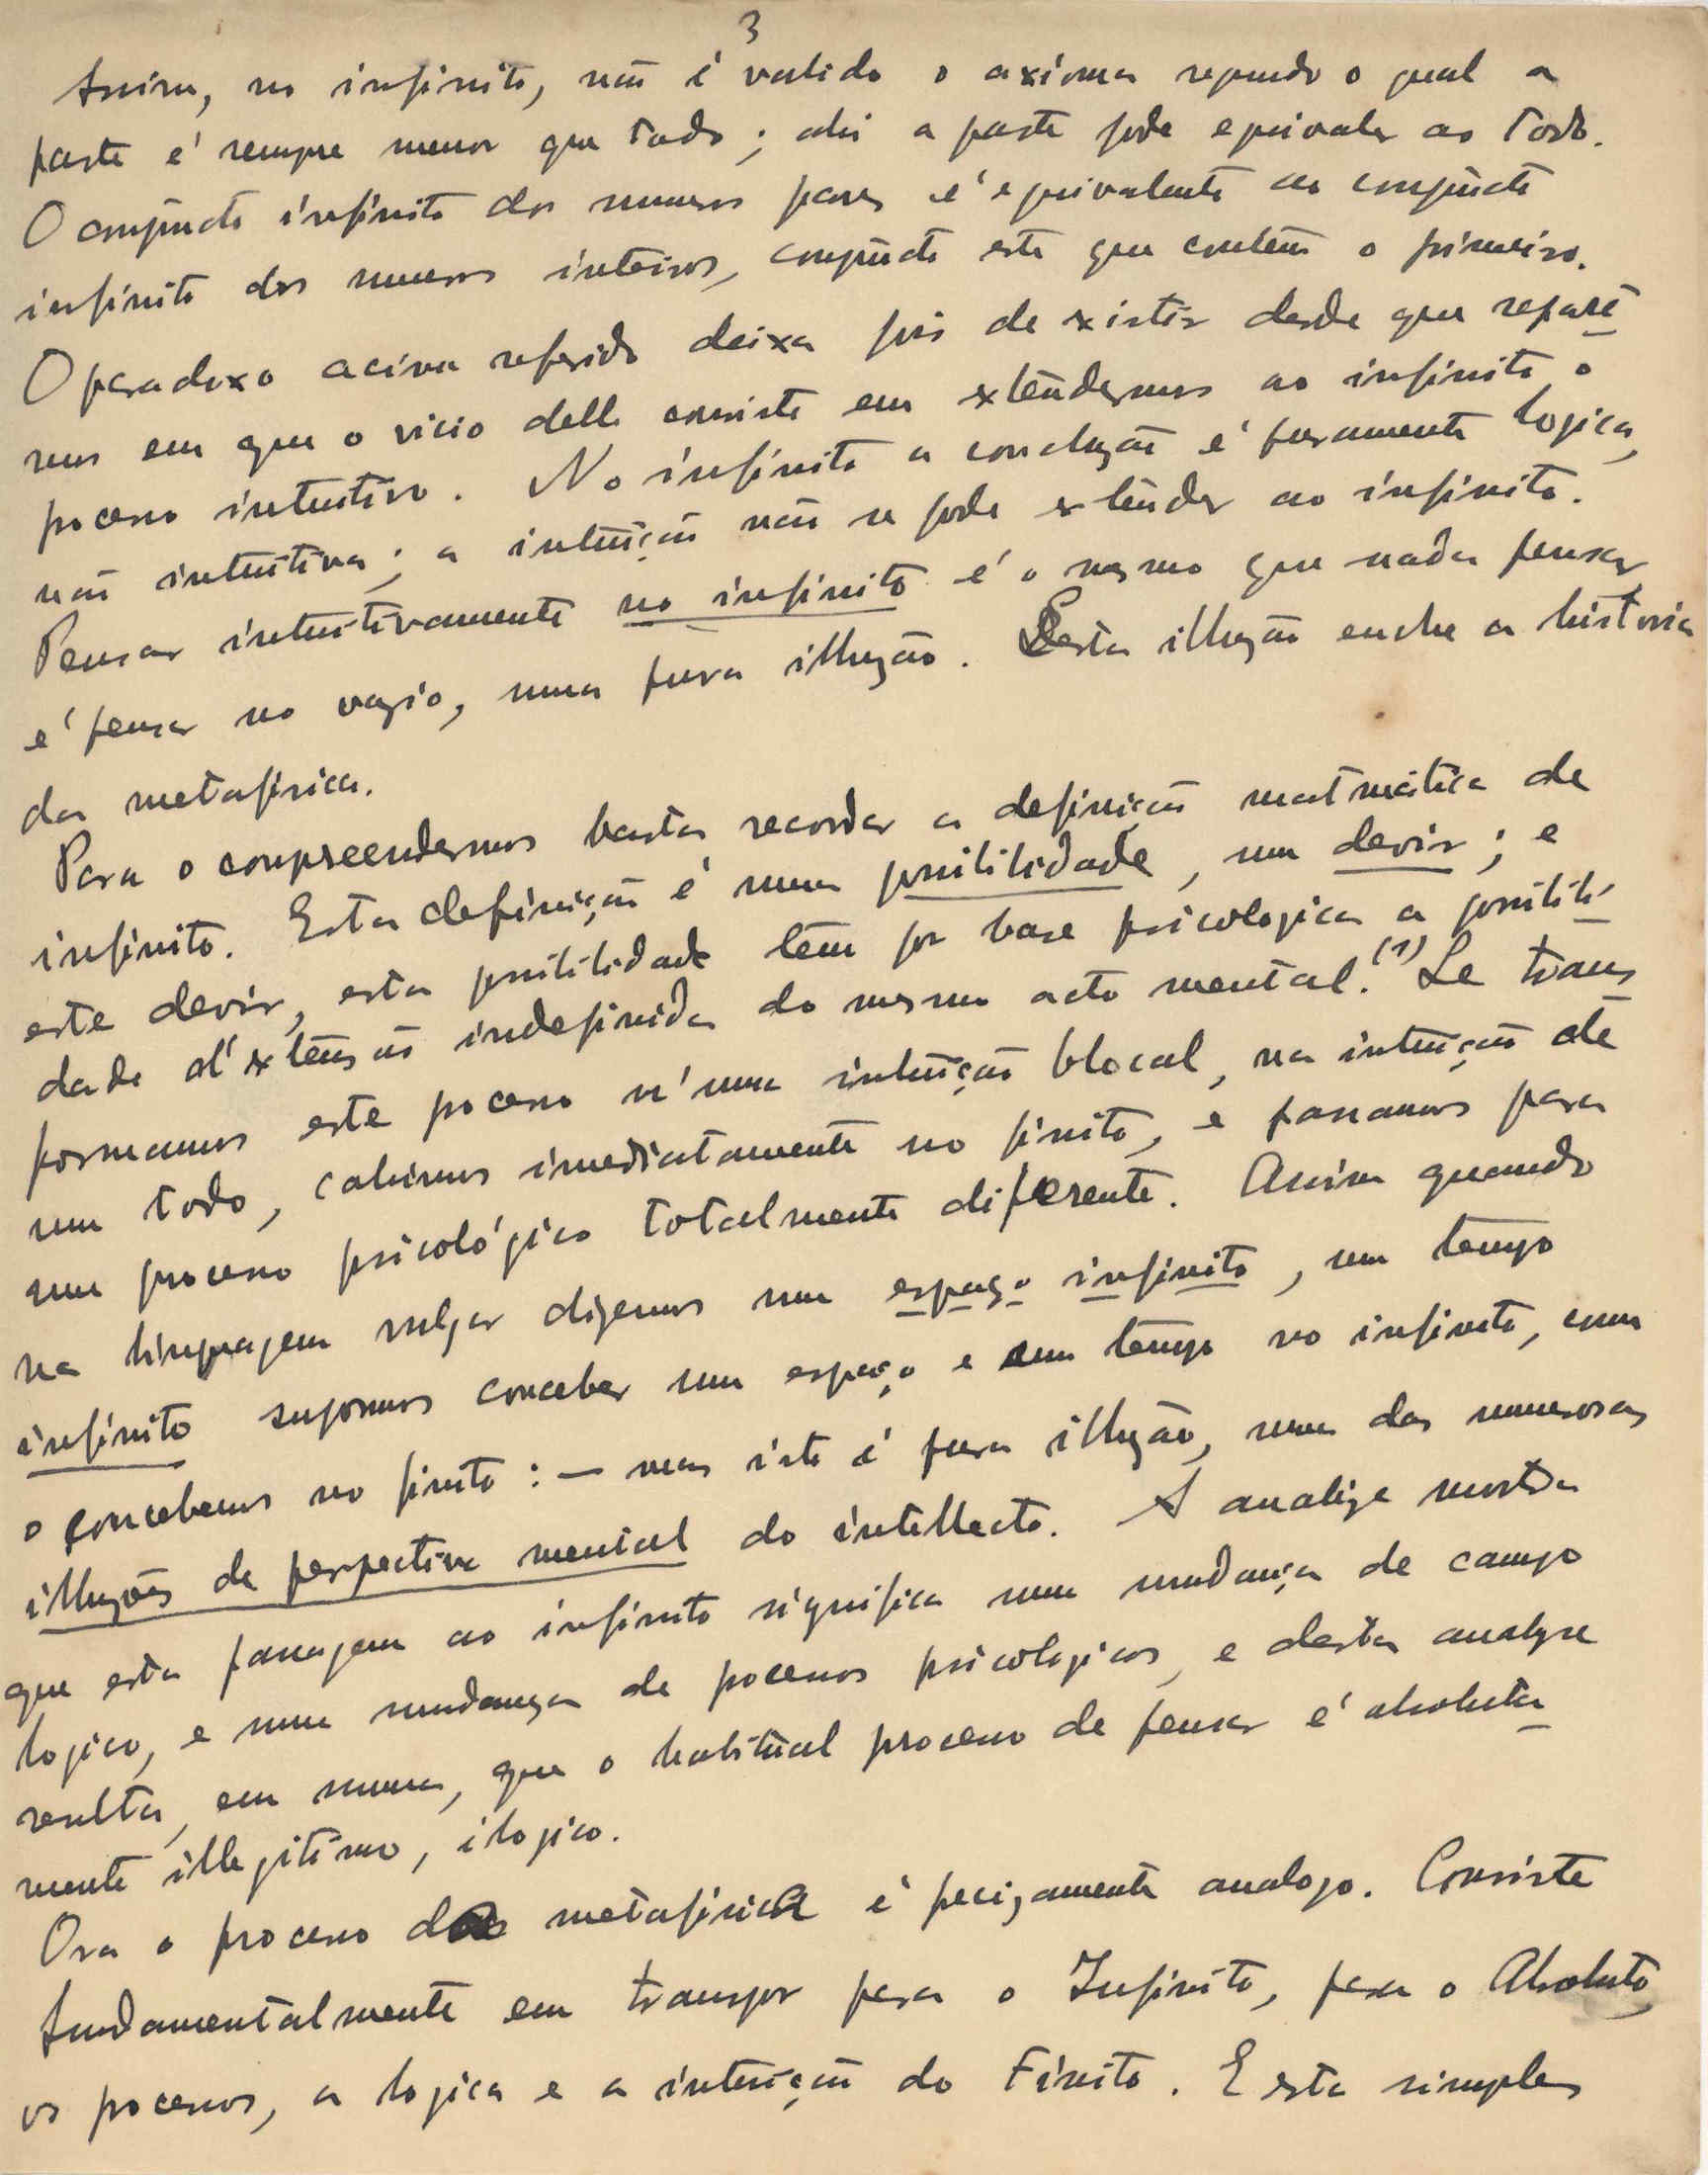 3
Assim, no infinito, não é valido o axioma segundo o qual a
parte é sempre menor que todo; ahi a parte pode equivaler ao todo.
O conjuncto infinito dos numeros pares é equivalente ao conjuncto
infinito dos numeros inteiros, conjuncto este que contém o primeiro.
O paradoxo acima referido deixa pois de existir desde que repare-
mos em que o vicio delle consiste em extendermos ao infinito o
processo intuitivo. No infinito a concluzão é puramente logica,
não intuitiva; a intuição não se pode extender ao infinito.
Pensar intuitivamente no infinito é o mesmo que nada pensar
é pensar no vazio, uma pura illuzão. Desta illuzão enche a historia
da metafisica.
Para o compreendermos basta recordar a definição matmática de
infinito. Esta definição é uma possibilidade, um devir; e
este devir, esta possibilidade tem por base psicologica a possibili-
dade d'extensão indefinida do mesmo acto mental.(1) Se trans
formamos este processo n'uma intuição blocal, na intuição de
um todo, cahimos imediatamente no finito, e passamos para
um processo psicológico totalmente diferente. Assim quando
na linguagem vulgar dizemos um espaço infinito, um tempo
infinito supomos conceber um espaço e um tempo no infinito, como
o concebemos no finito: — mas isto é pura illuzão, uma das numerosas
illuzões de perspectiva mental do intellecto. A analize mostra
que esta passagem ao infinito significa uma mudança de campo
logico, e uma mudança de processos psicologicos, e desta analyse
resulta, em suma, que o habitual processo de pensar é absoluta-
mente illegitimo, ilogico.
Ora o processo da metafisica é precizamente analogo. Consiste
fundamentalmente em transpor para o Infinito, para o Absoluto,
os processos, a logica e a intuição do Finito. E esta simples